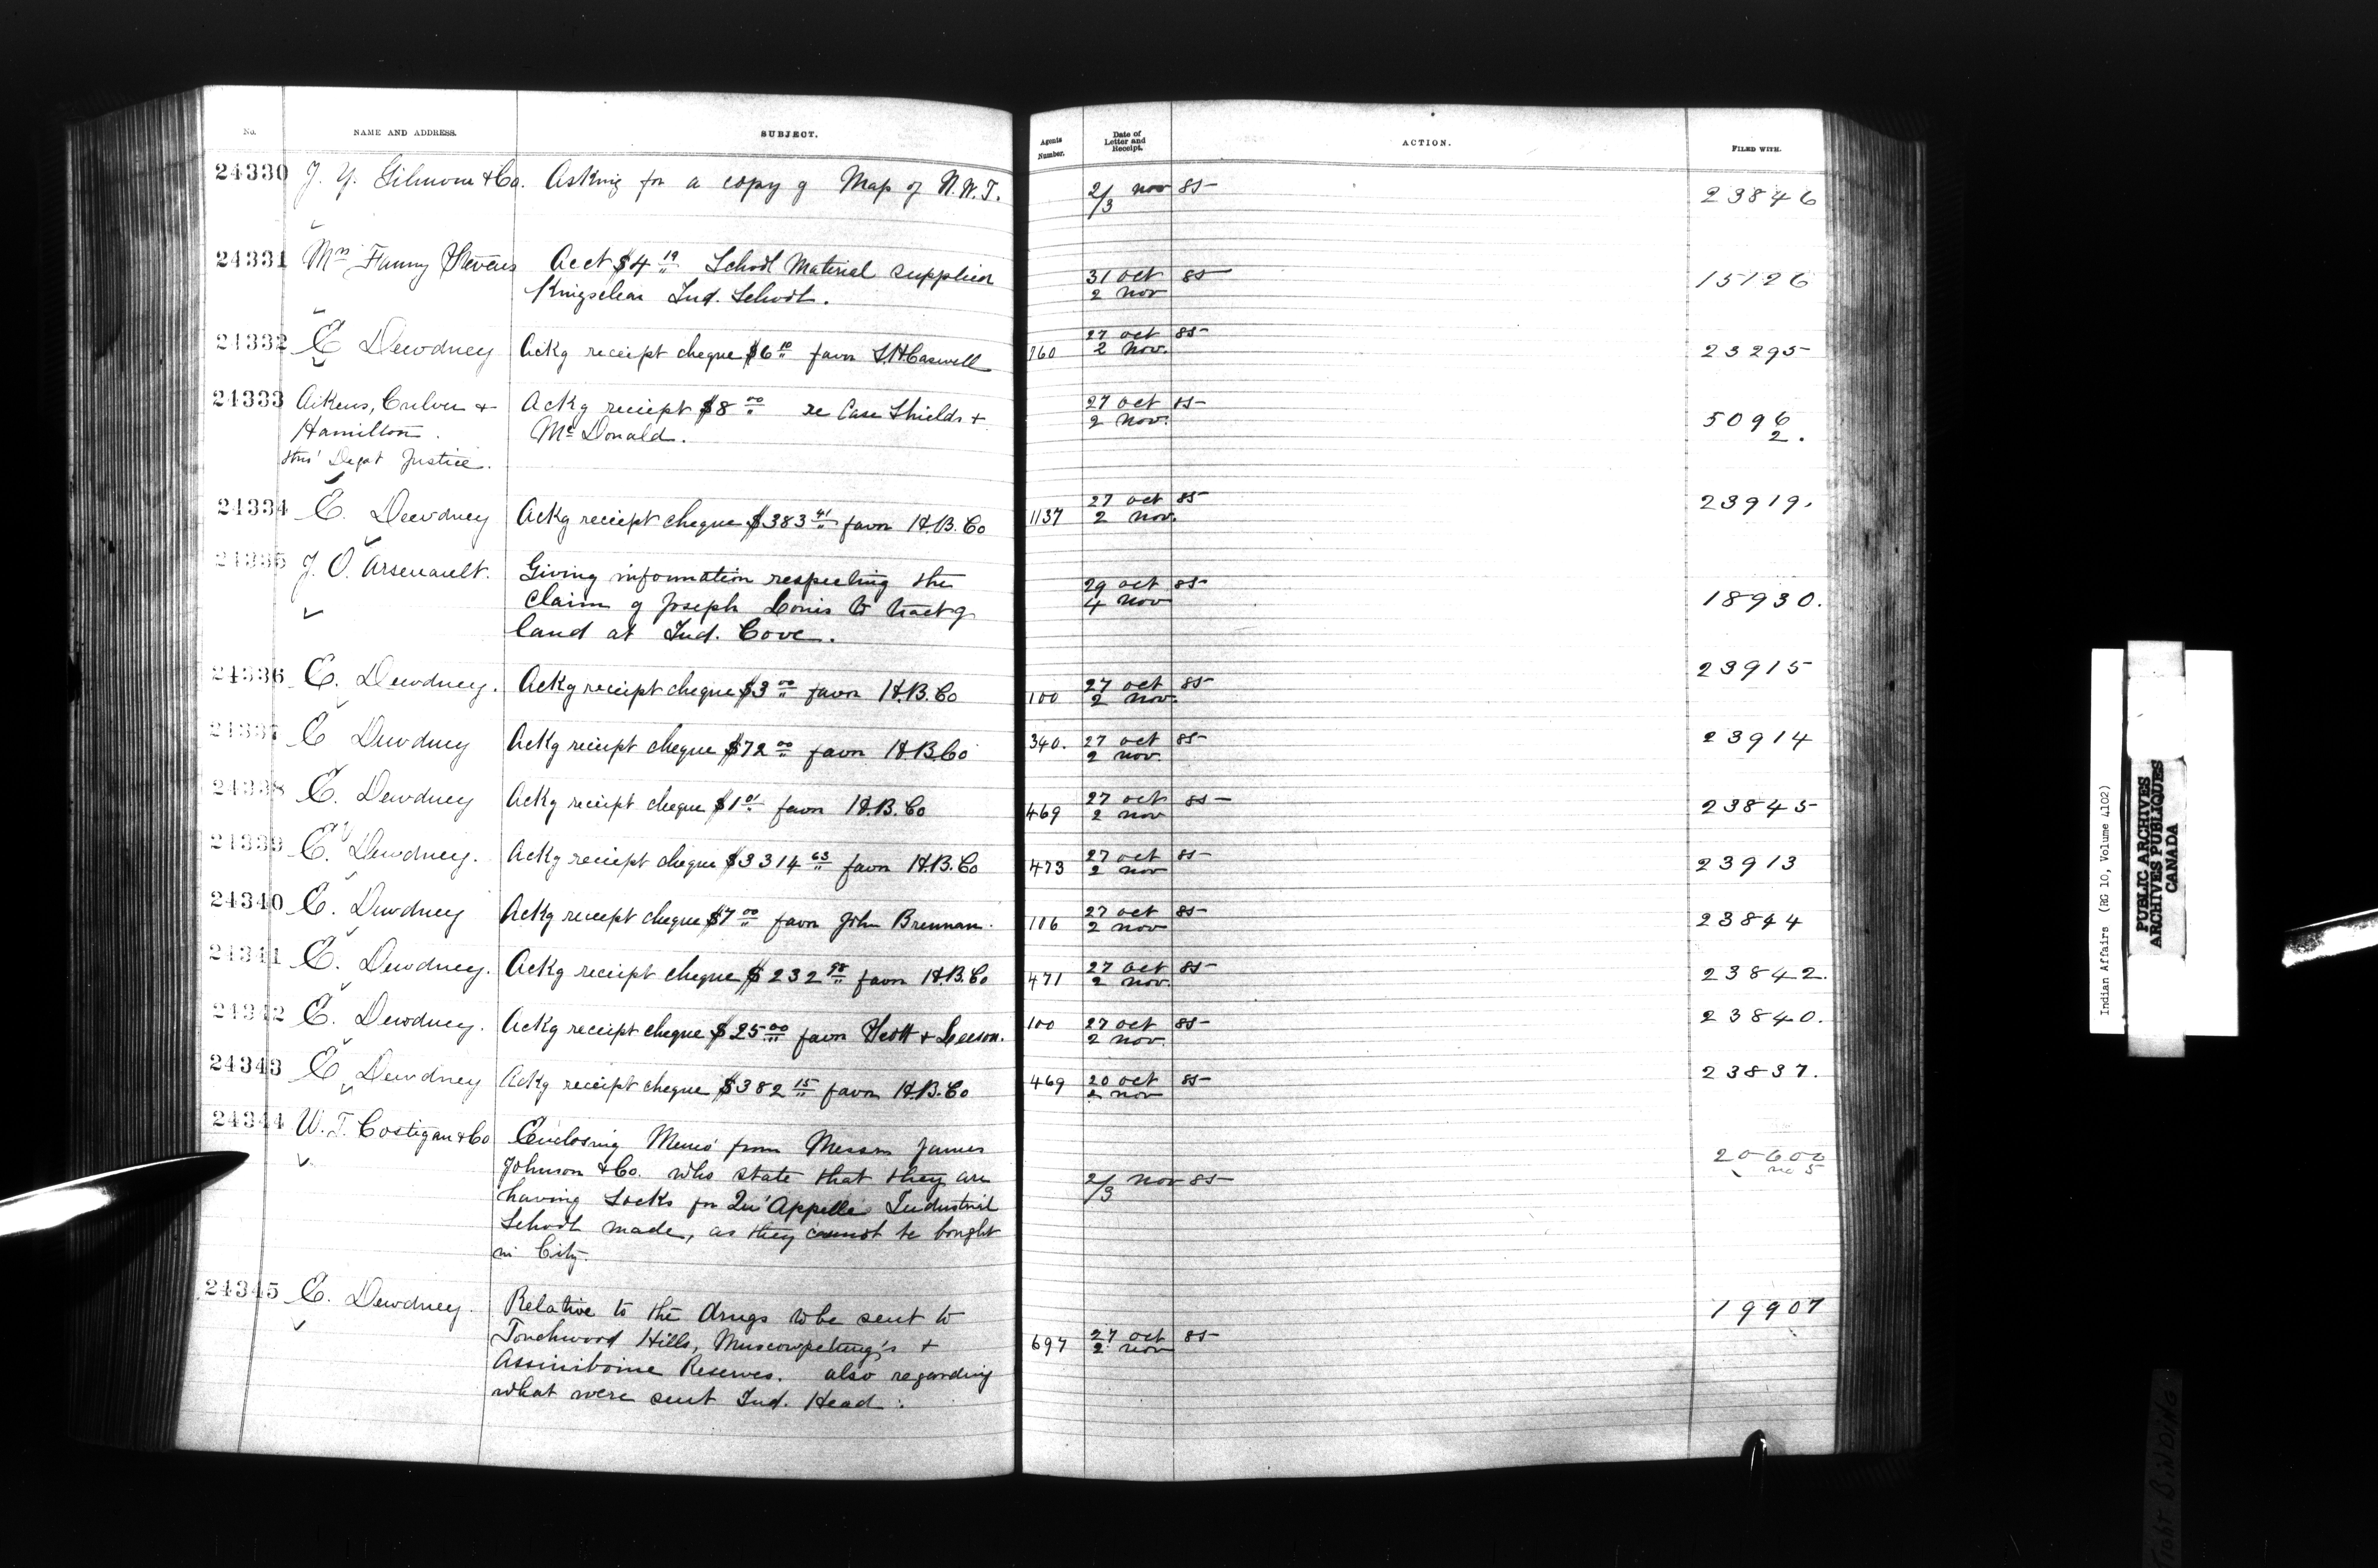 No. NAME AND ADDRESS. SUBJECT. Agents Number. Date of Letter and Receipt. ACTION. FILED WITH.
24330 J. Y. Gilmour & Co. Asking for a copy of Map of N.W.T. 2/3 nov 85 23846
24331 Mrs Fanny Stevens Acct $4 19 School Material supplied 31 oct 85 15126
Kingsclear Ind. School. 2 nov
24332 E Dewdney Ackg receipt cheque $6 10 favor Caswell 160 27 oct 85 23295
2 nov.
24333 Aikens, Culver & Ackg receipt $8 00 re Case Shields + 27 oct 85 5096
Hamilton. McDonald. 2 nov. 2.
thro' Dept Justice.
24334 E. Dewdney Ackg receipt cheque $383 41 favor H.B. Co 1137 27 oct 85 23919.
2 nov.
24335 J. O. Arsenault. Giving information respecting the 29 oct 85
claim of Joseph Louis to tract of 4 nov 18930.
land at Ind. Cove.
24336 E. Dewdney. Ackg receipt cheque $3 00 favor H.B. Co 100 27 oct 85 23915
2 nov.
24337 E Dewdney Ackg receipt cheque $72 00 favor H.B. Co 340. 27 oct 85 23914
2 nov.
24338 E. Dewdney Ackg receipt cheque $1 01 favor H.B. Co 469 27 oct 85 23845
2 nov
24339 E. Dewdney. Ackg receipt cheque $3314 63 favor H.B. Co 473 27 oct 85 23913
2 nov
24340 E. Dewdney Ackg receipt cheque $7 00 favor John Brennan. 106 27 oct 85 23844
2 nov
24341 E. Dewdney. Ackg receipt cheque $232 98 favor H.B. Co 471 27 oct 85 23842.
2 nov.
24342 E. Dewdney. Ackg receipt cheque $25 00 favor Scott & Leeson. 100 27 oct 85 23840.
2 nov.
24343 E Dewdney Ackg receipt cheque $382 15 favor H.B. Co 469 20 oct 85 23837.
2 nov
24344 W. T. Costigan & Co Enclosing Memo from Messrs James 20600
Johnson & Co. who state that they are 2/3 nov 85 no 5
having socks for Qu'Appelle Industrial
School made, as they cannot be bought
in City.
24345 E. Dewdney. Relative to the drugs to be sent to 19907
Touchwood Hills, Muscowpetung's + 697 27 oct 85
Assiniboine Reserves. also regarding 2 nov
what were sent Ind. Head.
Indian Affairs (RG 10, Volume 4102)
PUBLIC ARCHIVES
ARCHIVES PUBLIQUES
CANADA
TIGHT BINDING